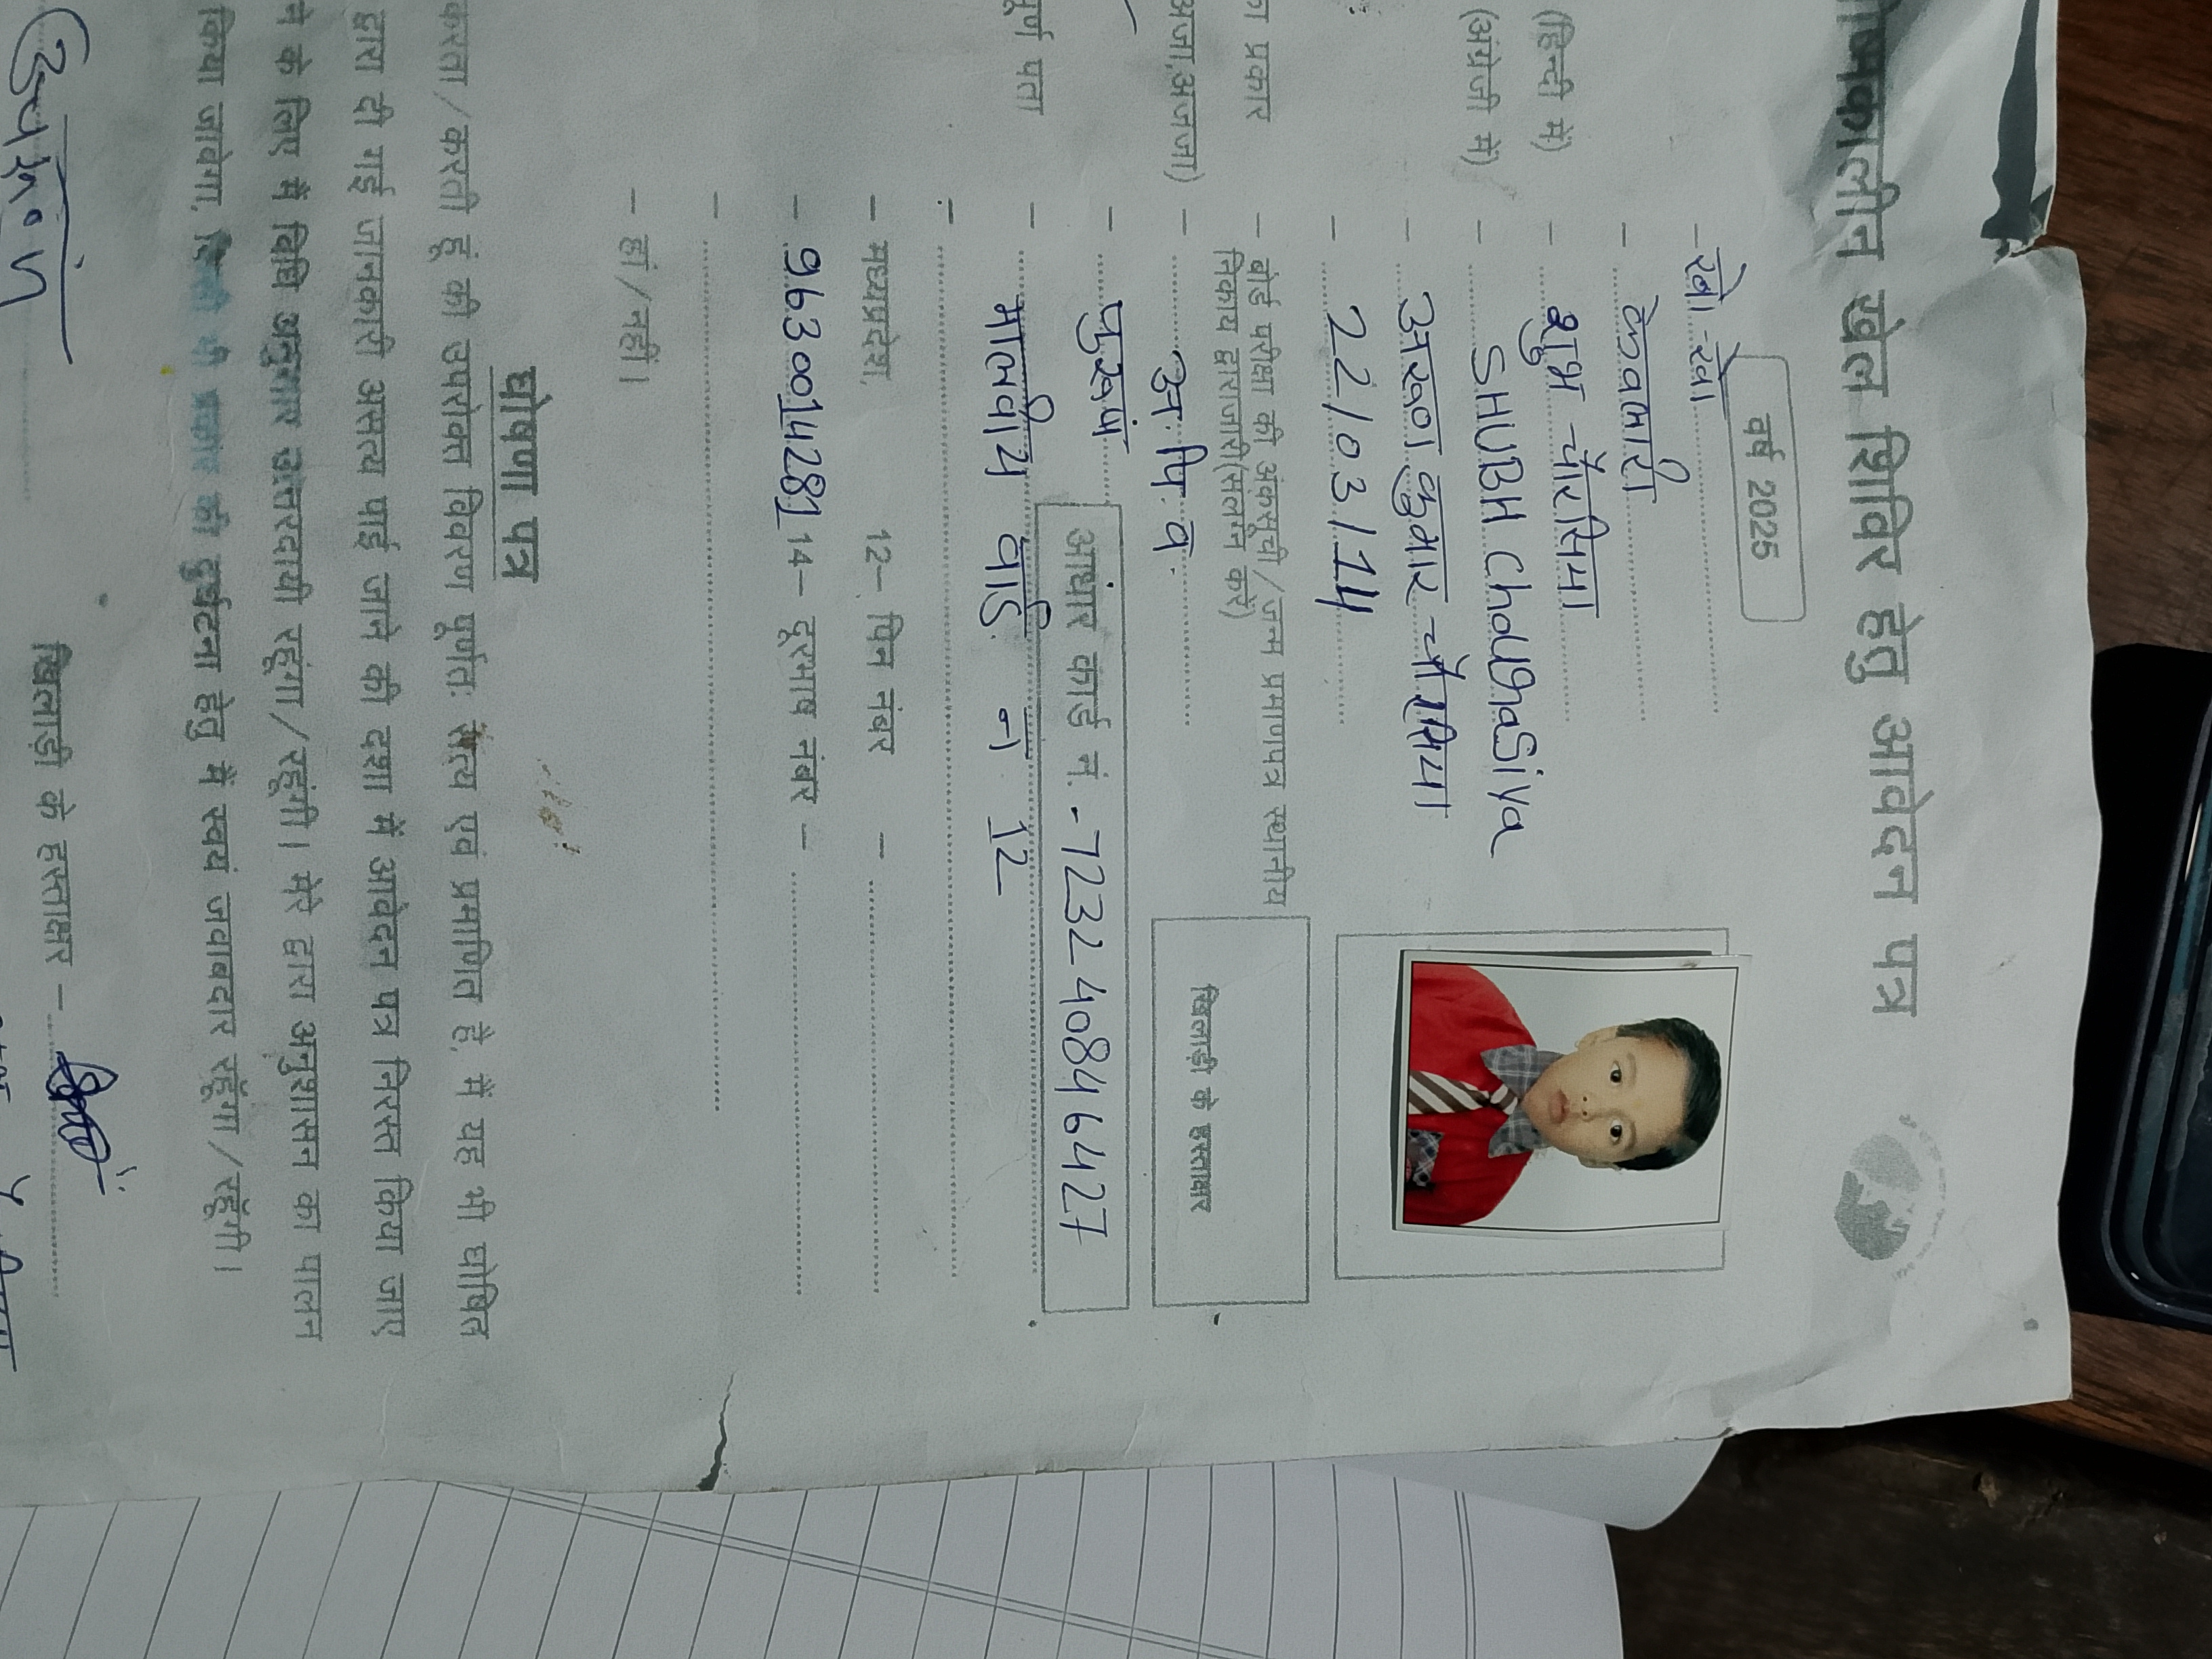 ष्मकालीन खेल शिविर हेतु आवेदन पत्र
वर्ष 2025
- खो-खो
- केवलारी
(हिन्दी में) - शुभ चौरसिया
(अंग्रेजी में) - SHUBH ChouRhaSiya
- अरूण कुमार चौरसिया
- 22/03/14
का प्रकार - बोर्ड परीक्षा की अंकसूची/जन्म प्रमाणपत्र स्थानीय
निकाय द्वाराजारी(सलग्न करें)
अजा,अजजा) - अ. पि. व.
खिलाड़ी के हस्ताक्षर
- पुरूष
आधार कार्ड नं. - 723240846427
पूर्ण पता - मालवीय वार्ड न 12
- मध्यप्रदेश, 12- पिन नंबर -
- 9630014281 14- दूरभाष नंबर -
-
- हां/नहीं।
घोषणा पत्र
करता/करती हूं की उपरोक्त विवरण पूर्णतः सत्य एवं प्रमाणित है, में यह भी घोषित
द्वारा दी गई जानकारी असत्य पाई जाने की दशा में आवेदन पत्र निरस्त किया जाए
ने के लिए में विधि अनुसार उत्तरदायी रहूंगा/रहूंगी। मेरे द्वारा अनुशासन का पालन
किया जावेगा, किसी भी प्रकार की दुर्घटना हेतु में स्वयं जवाबदार रहूंगा/रहूंगी।
खिलाड़ी के हस्ताक्षर -